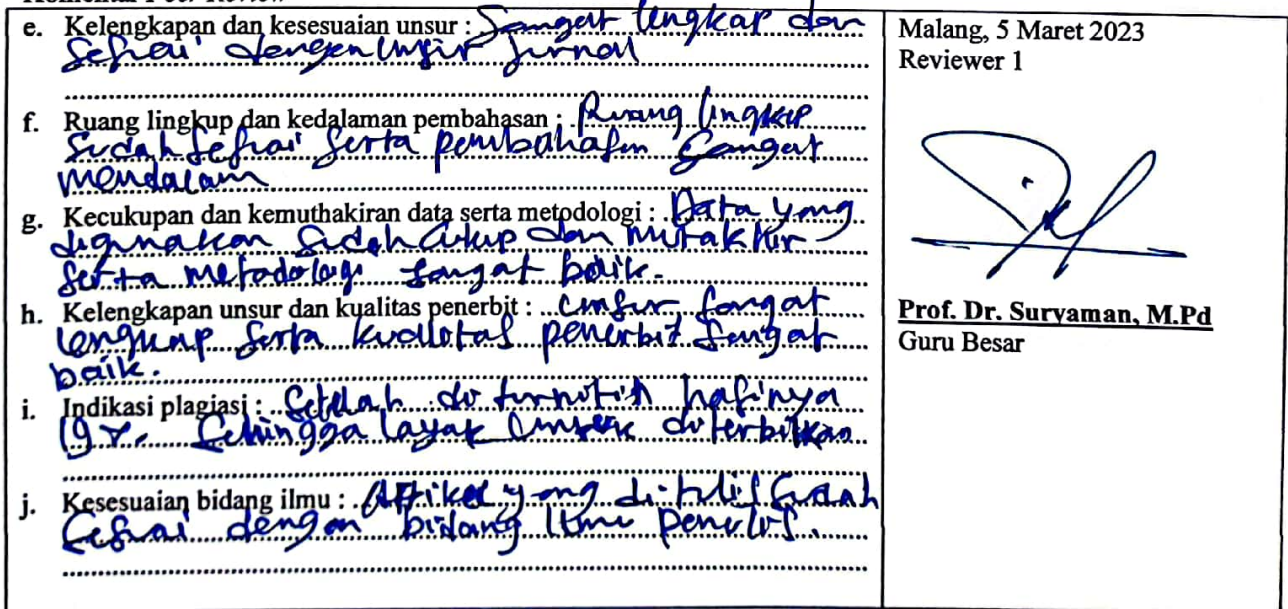 Komentar Peer Review
e. Kelengkapan dan kesesuaian unsur : Sangat lengkap dan
sesuai dengan unsur jurnal
f. Ruang lingkup dan kedalaman pembahasan : Ruang lingkup
sudah sesuai serta pembahasan sangat
mendalam
g. Kecukupan dan kemuthakiran data serta metodologi : Data yang
digunakan sudah cukup dan mutakhir
serta metodologi sangat baik.
h. Kelengkapan unsur dan kualitas penerbit : unsur sangat
lengkap serta kualitas penerbit sangat
baik.
i. Indikasi plagiasi : Setelah di turnitin hasilnya
19%. Sehingga layak untuk diterbitkan
j. Kesesuaian bidang ilmu : Artikel yang ditulis sudah
sesuai dengan bidang ilmu penulis.
Malang, 5 Maret 2023
Reviewer 1
Prof. Dr. Suryaman, M.Pd
Guru Besar